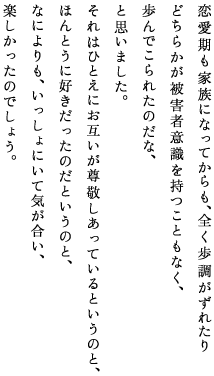 恋愛期も家族になってからも、全く歩調がずれたり
どちらかが被害者意識を持つこともなく、
歩んでこられたのだな、
と思いました。
それはひとえにお互いが尊敬しあっているというのと、
ほんとうに好きだったのだというのと、
なによりも、いっしょにいて気が合い、
楽しかったのでしょう。